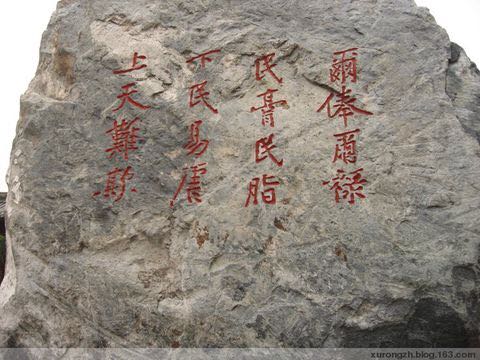 爾俸爾祿
民膏民脂
下民易虐
上天難欺
xurongzh.blog.163.com